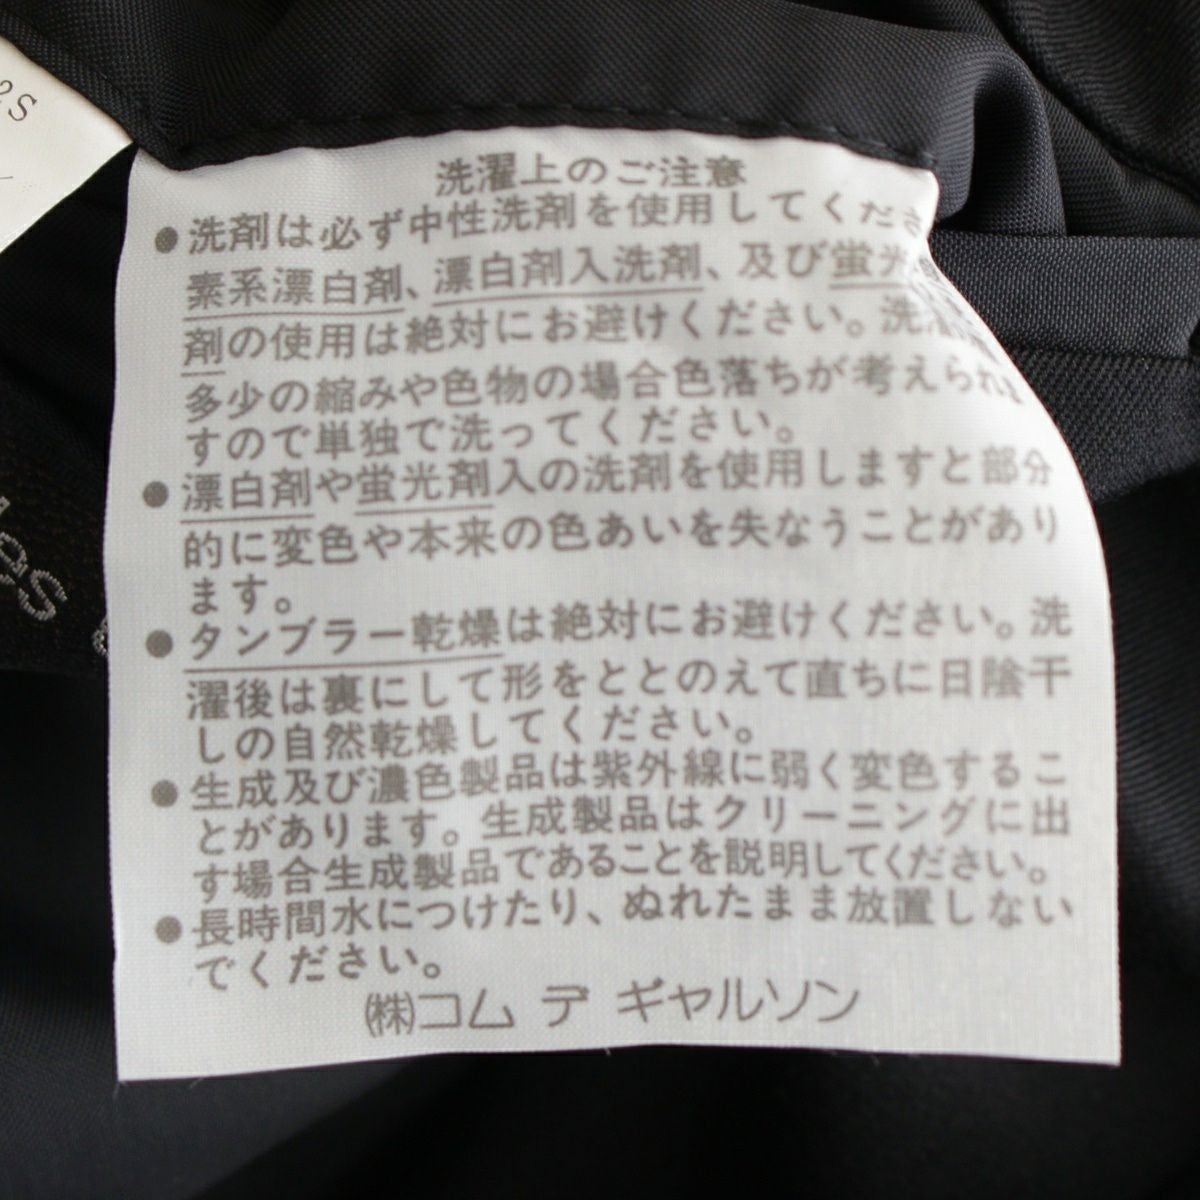 2S
洗濯上のご注意
●洗剤は必ず中性洗剤を使用してくださ
素系漂白剤、漂白剤入洗剤、及び蛍光
剤の使用は絶対にお避けください。洗濯
多少の縮みや色物の場合色落ちが考えられま
すので単独で洗ってください。
●漂白剤や蛍光剤入の洗剤を使用しますと部分
的に変色や本来の色あいを失なうことがあり
ます。
●タンブラー乾燥は絶対にお避けください。洗
濯後は裏にして形をととのえて直ちに日陰干
しの自然乾燥してください。
●生成及び濃色製品は紫外線に弱く変色するこ
とがあります。生成製品はクリーニングに出
す場合生成製品であることを説明してください。
●長時間水につけたり、ぬれたまま放置しない
でください。
㈱コム デ ギャルソン
les